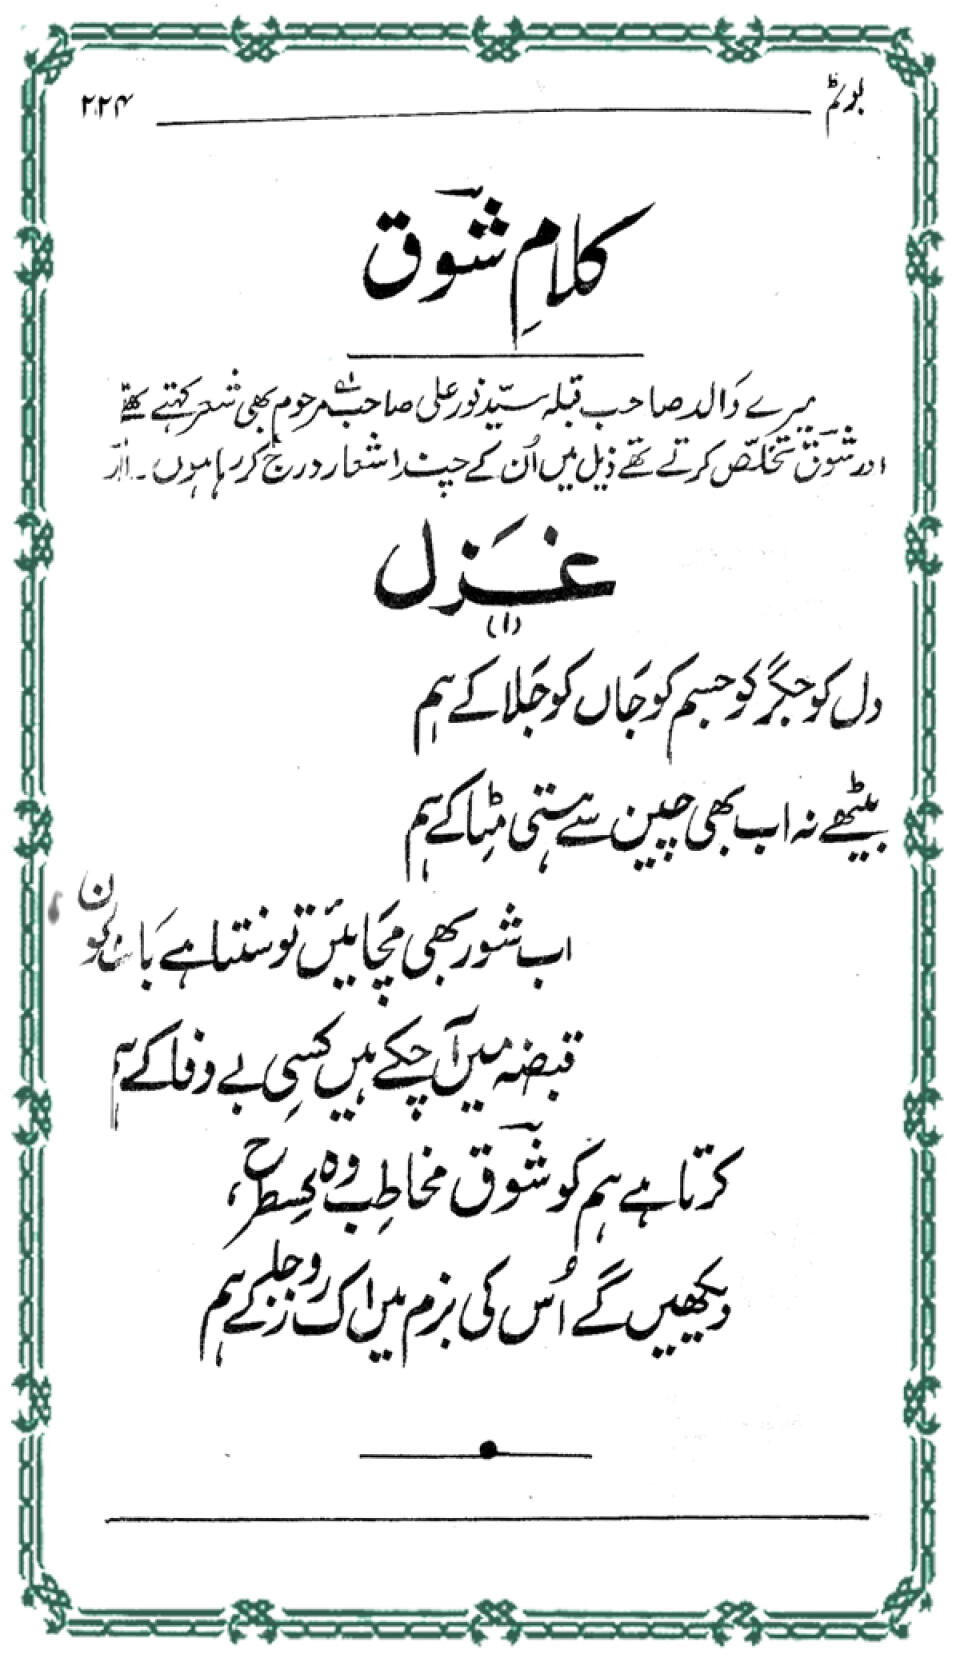 ۲۲۴
کلامِ شوؔق
میرے والد صاحب قبلہ سیّد نور علی صاحب مرحوم بھی شعر کہتے تھے
اور شوؔق تخلّص کرتے تھے ذیل میں اُن کے چند اشعار درج کر رہا ہوں ۔
غزل
(۱)
دل کو جگر کو جسم کو جاں کو جلا کے ہم
بیٹھے نہ اب بھی چین سے ہستی مٹا کے ہم
اب شور بھی مچائیں تو سنتا ہے بات کون
قبضہ میں آ چکے ہیں کسی بے وفا کے ہم
کرتا ہے ہم کو شوؔق مخاطب وہ کس طرح،
دیکھیں گے اُس کی بزم میں اک روز جا کے ہم